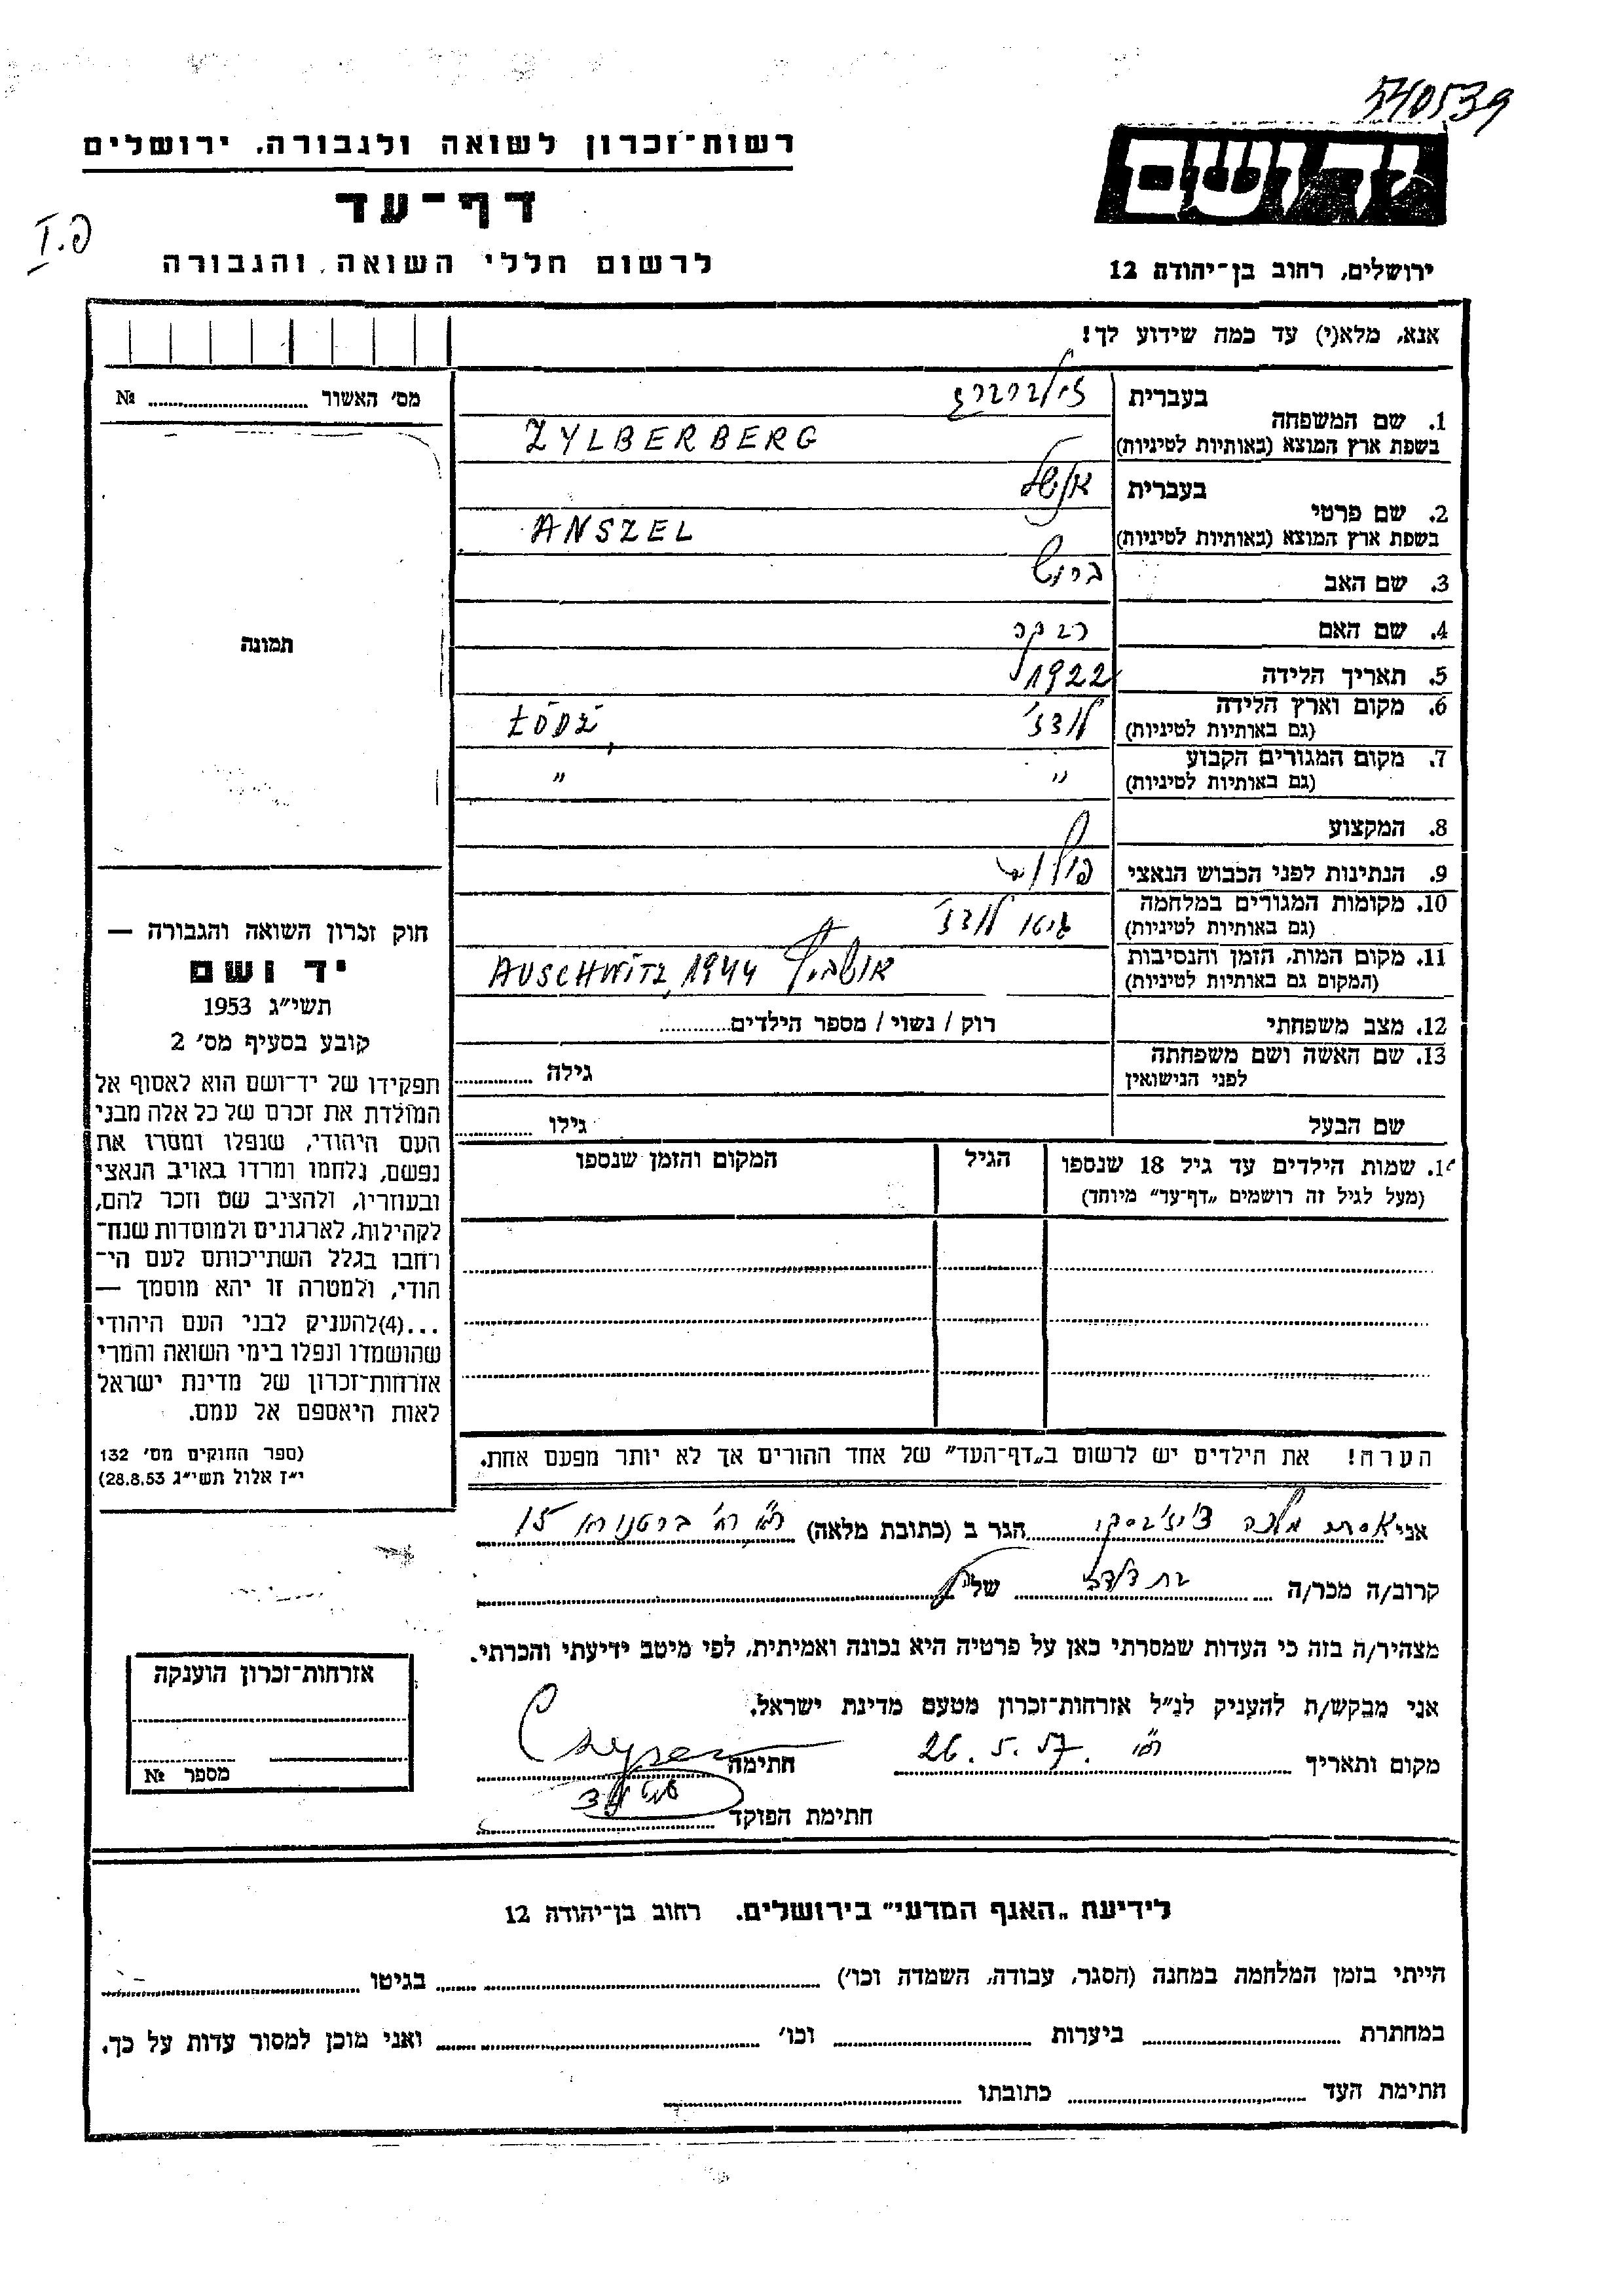 540539
רשות־זכרון לשואה ולגבורה. ירושלים
יד ושם
דף־עד
פ.I
לרשום חללי השואה והגבורה
ירושלים, רחוב בן־יהודה 12
אנא, מלא(י) עד כמה שידוע לך!
מס׳ האשור № ........
1. שם המשפחה
בעברית זילברברג
בשפת ארץ המוצא (באותיות לטיניות) ZYLBERBERG
2. שם פרטי
בעברית אנשל
בשפת ארץ המוצא (באותיות לטיניות) ANSZEL
3. שם האב ברוש
4. שם האם רבקה
5. תאריך הלידה 1922
6. מקום וארץ הלידה לודז׳ ŁÓDŹ
(גם באותיות לטיניות)
7. מקום המגורים הקבוע " "
(גם באותיות לטיניות)
8. המקצוע
9. הנתינות לפני הכבוש הנאצי
10. מקומות המגורים במלחמה גיטו לודז׳
(גם באותיות לטיניות)
11. מקום המות, הזמן והנסיבות AUSCHWITZ, 1944
(המקום גם באותיות לטיניות)
12. מצב משפחתי רוק / נשוי / מספר הילדים........
13. שם האשה ושם משפחתה
לפני הנישואין גילה ........
שם הבעל גילו ........
תמונה
חוק זכרון השואה והגבורה —
יד ושם
תשי״ג 1953
קובע בסעיף מס׳ 2
תפקידו של יד־ושם הוא לאסוף אל
המולדת את זכרם של כל אלה מבני
העם היהודי, שנפלו ומסרו את
נפשם, נלחמו ומרדו באויב הנאצי
ובעוזריו, ולהציב שם וזכר להם,
לקהילות, לארגונים ולמוסדות שנח־
רחבו בגלל השתייכותם לעם הי־
הודי, ולמטרה זו יהא מוסמך —
...(4)להעניק לבני העם היהודי
שהושמדו ונפלו בימי השואה והמרי
אזרחות־זכרון של מדינת ישראל
לאות היאספם אל עמם.
(ספר החוקים מס׳ 132
י״ז אלול תשי״ג 28.8.53)
14. שמות הילדים עד גיל 18 שנספו הגיל המקום והזמן שנספו
(מעל לגיל זה רושמים „דף־עד״ מיוחד)
הערה! את הילדים יש לרשום ב„דף־העד״ של אחד ההורים אך לא יותר מפעם אחת.
אני אסתר מלכה הגר ב (כתובת מלאה) רח׳ ברטנורא 15
קרוב/ה מכר/ה בת דודה של
מצהיר/ה בזה כי העדות שמסרתי כאן על פרטיה היא נכונה ואמיתית, לפי מיטב ידיעתי והכרתי.
אני מבקש/ת להעניק לנ״ל אזרחות־זכרון מטעם מדינת ישראל.
מקום ותאריך 26.5.57 חתימה
חתימת הפוקד
אזרחות־זכרון הוענקה
מספר №
לידיעת „האגף המדעי״ בירושלים. רחוב בן־יהודה 12
הייתי בזמן המלחמה במחנה (הסגר, עבודה, השמדה וכו׳) ........ בגיטו ........
במחתרת ........ ביערות ........ וכו׳ ........ ואני מוכן למסור עדות על כך.
חתימת העד ........ כתובתו ........